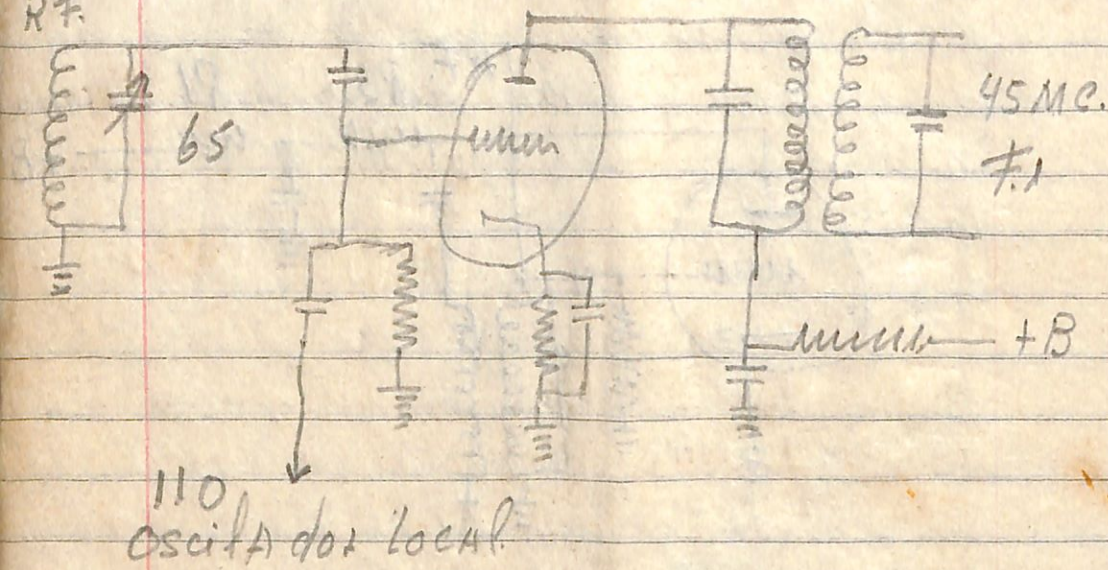 RF.
65
45 MC.
F.I
+B
110
oscilador local.